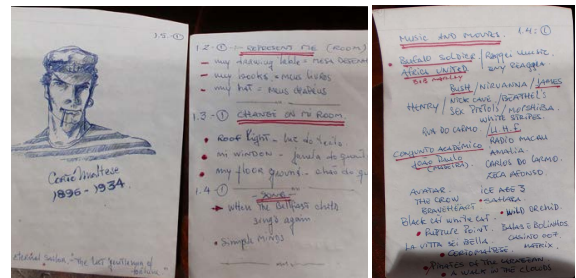 1.5 - ①
Corto Maltese
1896 - 1934.
"the last gentleman of
1.2 - ① - REPRESENT ME (ROOM)
- my drawing table = MESA DESENH
- my books = meus livros
- my hat = meus
1.3 - ① CHANGES ON MY ROOM.
• ROOF Right - luz do tecto
• mi WINDOW -
• my floor ground - chao do
1.4 - ① - SONG -
• When the Belfast child
sings again
• SIMPLE MINDS
MUSIC AND MOVIES. 1.4: ①
• BUFFALO SOLDIER / Ragga music.
AFRICA UNITED / reagga
BOB MARLEY
BUSH / NIRVANNA / JAMES
HENRY / NICK CAVE / BEATHELS
SEX PISTOLS / MORSHIBA
WHITE STRIPES.
RUA DO CARMO / U.H.F
RADIO MACAU
CONJUNTO ACADÉMICO AMALIA.
JOAO PAULO CARLOS DO CARMO.
ZECA AFONSO.
AVATAR. ICE AGE 3
THE CROW • SAHARA.
BRAVEHEART
BLACK CAT WHITE CAT. • WILD ORCHID.
• RUPTURE POINT. BALAS E BOLINHOS
LA VITTA SEI BELLA CASINO 007.
• CORTO MALTESE • MATRIX.
• PIRATES OF THE
• A WALK IN THE CLOUDS